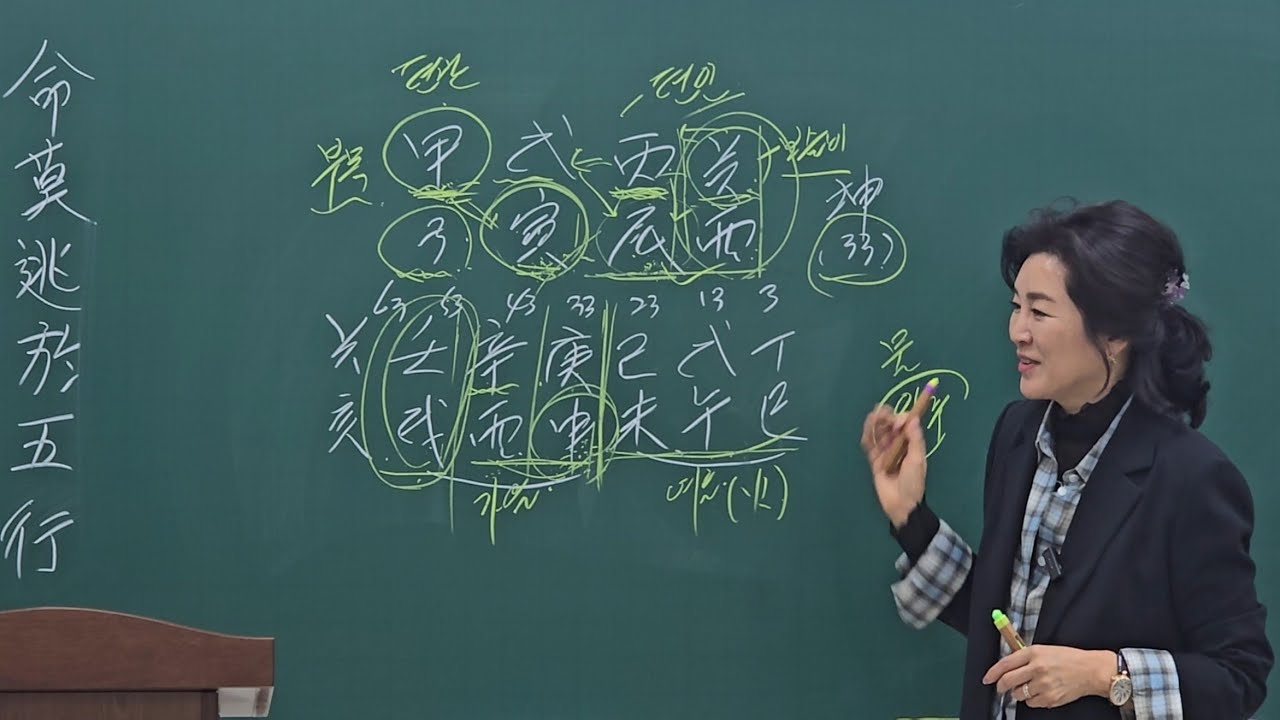 命莫逃於五行
편관 편인
甲 戊 丙 癸
子 寅 辰 酉
坤
(33)
63 53 43 33 23 13 3
癸 壬 辛 庚 己 戊 丁
亥 戌 酉 申 未 午 巳
가을 여름